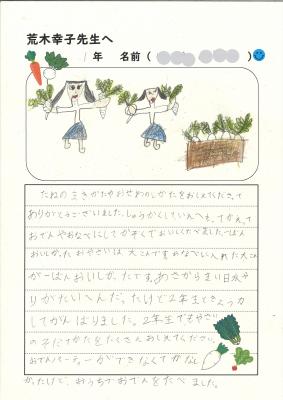 荒木幸子先生へ
1年 名前( )
たねのまきかたやおせわのしかたをおしえてくださって
ありがとうございました。しゅうかくして
おでんやおなべにしてかぞくでおいしくたべました。一ばん
おいしかったおやさいは大こんです。おなべに入れた大こん
が一ばんおいしかったです。あさがらまい日水や
りがたいへんだったけど2年生ときょう力
してがんばりました。2年生でもやさい
のそだてかたをたくさんおしえてください。
おでんパーティーができなくてかなし
かったけど、おうちでおでんをたべました。